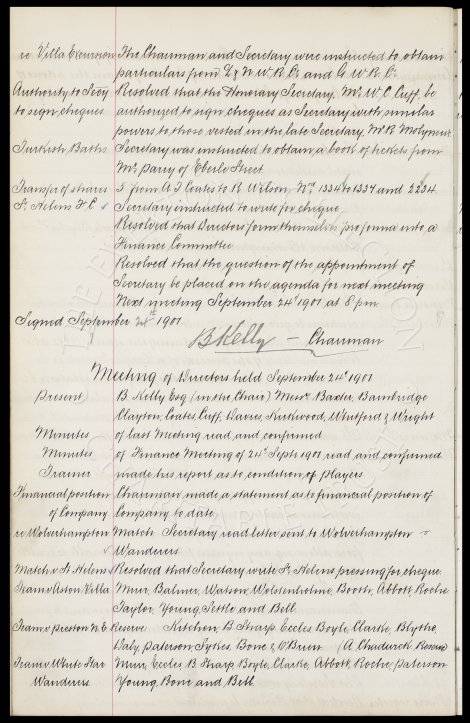 re Villa Excursion The Chairman and Secretary were instructed to obtain
particulars from L & N W. R. Co and G W R. Co.
Authority to Secy Resolved that the Honorary Secretary, Mr W. C. Cuff, be
to sign cheques authorized to sign cheques as Secretary with similar
powers to those vested in the late Secretary, Mr R. Molyneux.
Turkish Baths Secretary was instructed to obtain a book of tickets from
Mr Parry of Eberle Street
Transfer of shares 5 from A. J. Coates to R Wilson, Nos 1334 to 1337 and 2234.
St Helens F C Secretary instructed to write for cheque.
Resolved that Directors form themselves pro forma into a
Finance Committee
Resolved that the question of the appointment of
Secretary be placed on the agenda for next meeting
Next meeting September 24th 1901 at 8 p.m.
Signed September 24th 1901
B Kelly - Chairman
Meeting of Directors held September 24th 1901
Present B. Kelly Esq (in the Chair) Messrs Baxter, Bainbridge
Clayton, Coates, Cuff, Davies, Kirkwood, Whitford & Wright
Minutes of last Meeting read and confirmed
Minutes of Finance Meeting of 24th Septr 1901 read and confirmed
Trainer made his report as to condition of Players
Financial position Chairman made a statement as to financial position of
of Company Company to date
re Wolverhampton Match Secretary read letter sent to Wolverhampton
Wanderers
Match v St Helens Resolved that Secretary write St Helens pressing for cheque.
Team v Aston Villa Muir, Balmer, Watson, Wolstenholme, Booth, Abbott, Roche
Taylor, Young, Settle and Bell.
Team v Preston N. E. Reserve Kitchen, B Sharp, Eccles, Boyle, Clarke, Blythe,
Daly, Paterson, Sykes, Bone & O'Brien (A. Chadwick Reserve)
Team v White Star Muir, Eccles, B Sharp, Boyle, Clarke, Abbott, Roche, Paterson
Wanderers Young, Bone and Bell.